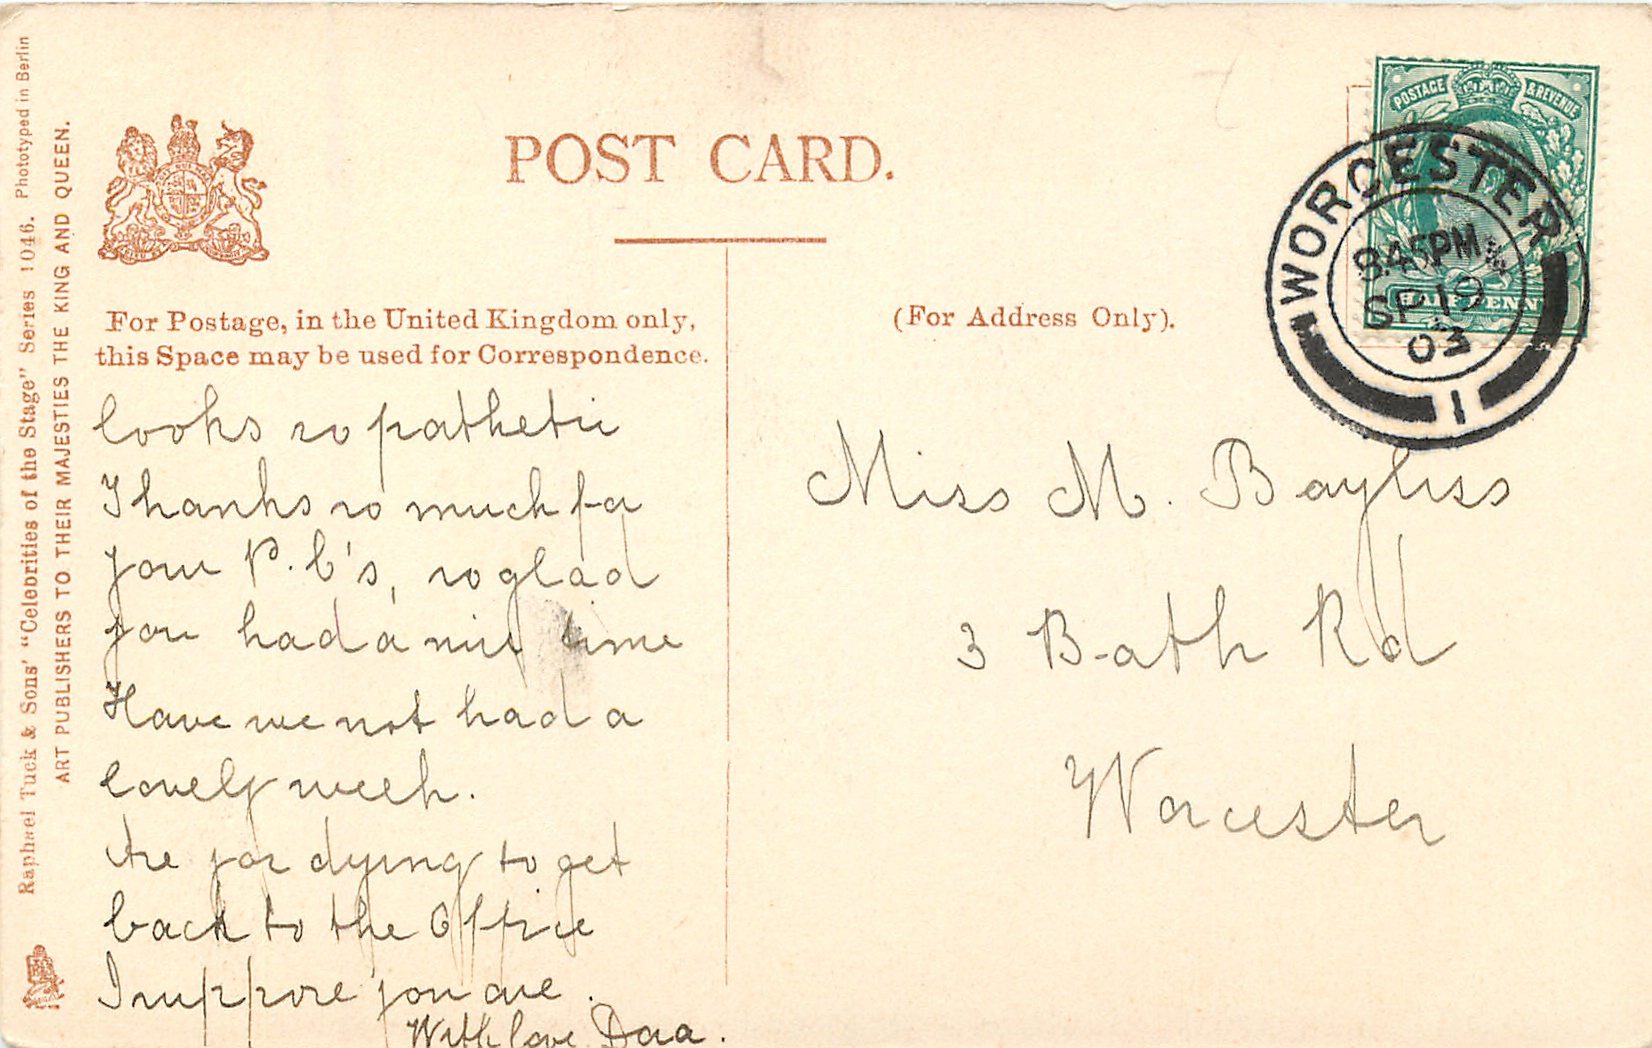 Raphael Tuck & Sons' "Celebrities of the Stage" Series 1046. Phototyped in Berlin
ART PUBLISHERS TO THEIR MAJESTIES THE KING AND QUEEN.
POST CARD.
For Postage, in the United Kingdom only,
this Space may be used for Correspondence.
(For Address Only).
POSTAGE & REVENUE
HALF PENNY
WORCESTER
8.45PM
SP 19
03
1
looks so pathetic
Thanks so much for
your P.C's, so glad
you had a nice time
Have we not had a
lovely week.
Are you dying to get
back to the Office
I suppose you are.
With love Dora.
Miss M. Bayliss
3 Bath Rd
Worcester